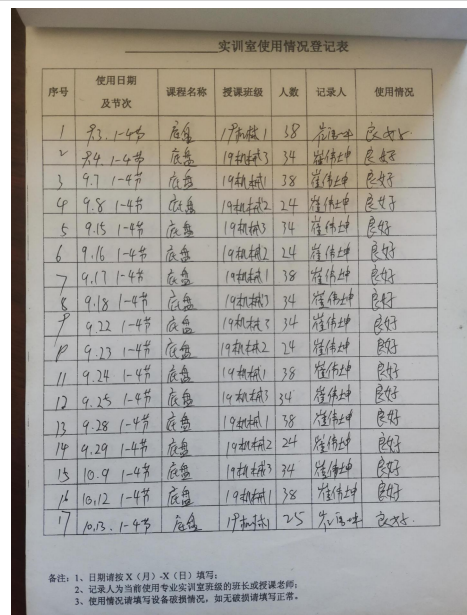 实训室使用情况登记表
序号 使用日期及节次 课程名称 授课班级 人数 记录人 使用情况
1 9.3. 1-4节 底盘 19机械1 38 崔伟坤 良好
2 9.4. 1-4节 底盘 19机械3 34 崔伟坤 良好
3 9.7 1-4节 底盘 19机械1 38 崔伟坤 良好
4 9.8 1-4节 底盘 19机械2 24 崔伟坤 良好
5 9.15 1-4节 底盘 19机械3 34 崔伟坤 良好
6 9.16 1-4节 底盘 19机械2 24 崔伟坤 良好
7 9.17 1-4节 底盘 19机械1 38 崔伟坤 良好
8 9.18 1-4节 底盘 19机械3 34 崔伟坤 良好
9 9.22 1-4节 底盘 19机械3 34 崔伟坤 良好
10 9.23 1-4节 底盘 19机械2 24 崔伟坤 良好
11 9.24 1-4节 底盘 19机械1 38 崔伟坤 良好
12 9.25 1-4节 底盘 19机械3 34 崔伟坤 良好
13 9.28 1-4节 底盘 19机械1 38 崔伟坤 良好
14 9.29 1-4节 底盘 19机械2 24 崔伟坤 良好
15 10.9 1-4节 底盘 19机械3 34 崔伟坤 良好
16 10.12 1-4节 底盘 19机械1 38 崔伟坤 良好
17 10.13. 1-4节 底盘 19机械1 25 良好.
备注：1、日期请按 X（月）-X（日）填写；
2、记录人为当前使用专业实训室班级的班长或授课老师；
3、使用情况请填写设备破损情况，如无破损请填写正常。